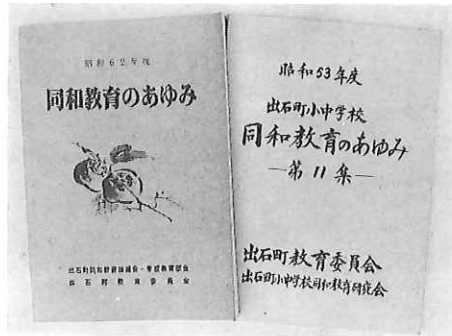 昭和62年度
同和教育のあゆみ
出石町同和教育協議会・学校教育部会
出石町教育委員会
昭和53年度
出石町小中学校
同和教育のあゆみ
―第11集―
出石町教育委員会
出石町小中学校同和教育研究会